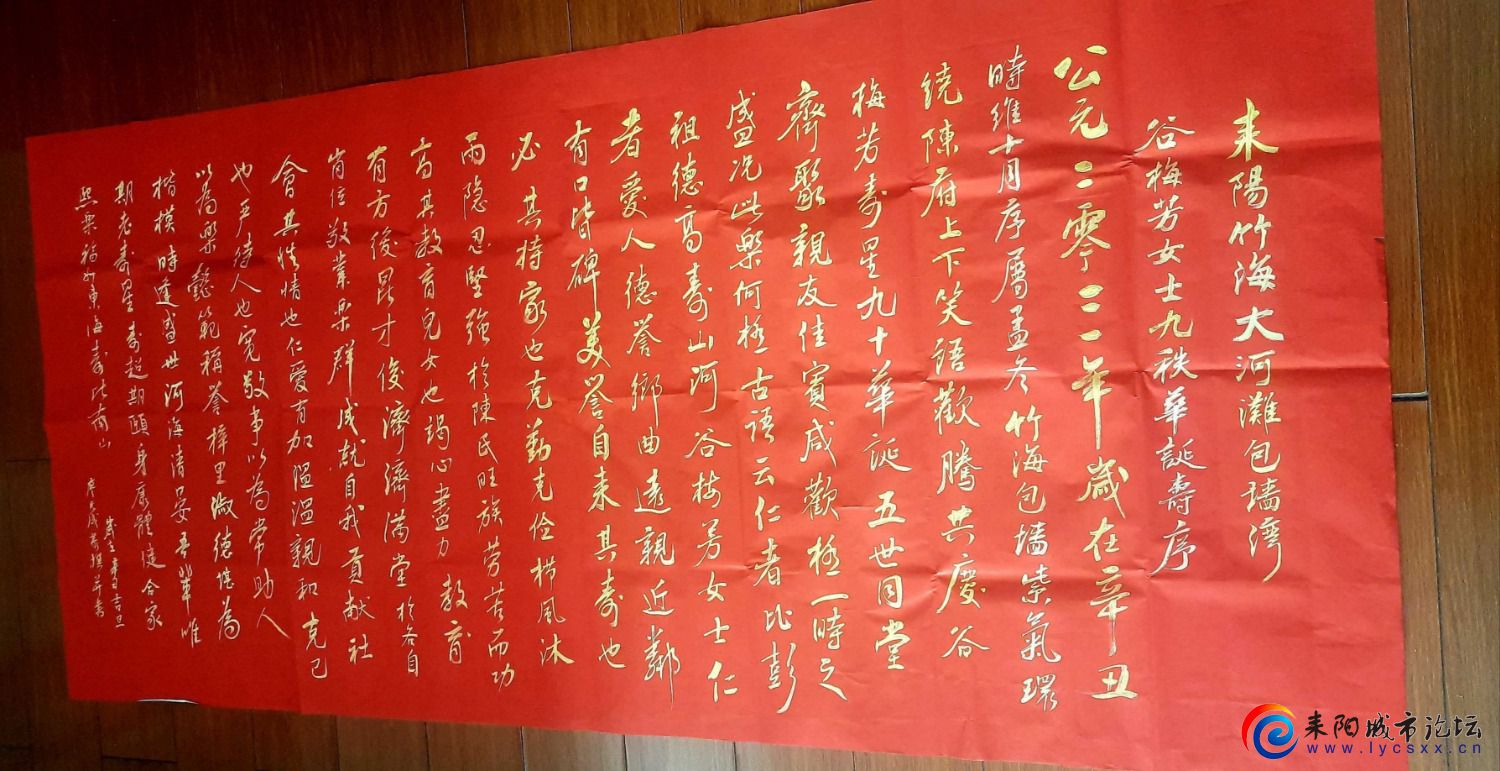 耒陽竹海大河灘包墻灣
谷梅芳女士九秩華誕壽序
公元二零二一年歲在辛丑
時維十月序屬孟冬竹海包墻紫氣環
繞陳府上下笑語歡騰共慶谷
梅芳壽星九十華誕五世同堂
齊聚親友佳賓咸歡極一時之
盛況此樂何極古語云仁者比彭
祖德高壽山河谷梅芳女士仁
者愛人德譽鄉曲遠親近鄰
有口皆碑美譽自来其壽也
必其持家也克勤克儉櫛風沐
雨隐忍堅強於陳氏旺族劳苦而功
高其教育兒女也竭心盡力教育
有方後昆才俊濟濟滿堂於各自
崗位敬業樂群成就自我貢献社
會其性情也仁愛有加溫溫親和克己
也严待人也寬敬事以為常助人
以為樂懿範稱譽梓里淑德堪為
楷模時逢盛世河海清晏吾輩唯
期老壽星壽超期頤身康體健合家
熙樂福如東海壽比南山
吉旦
撰并書
耒阳城市论坛
www.lycsxx.cn